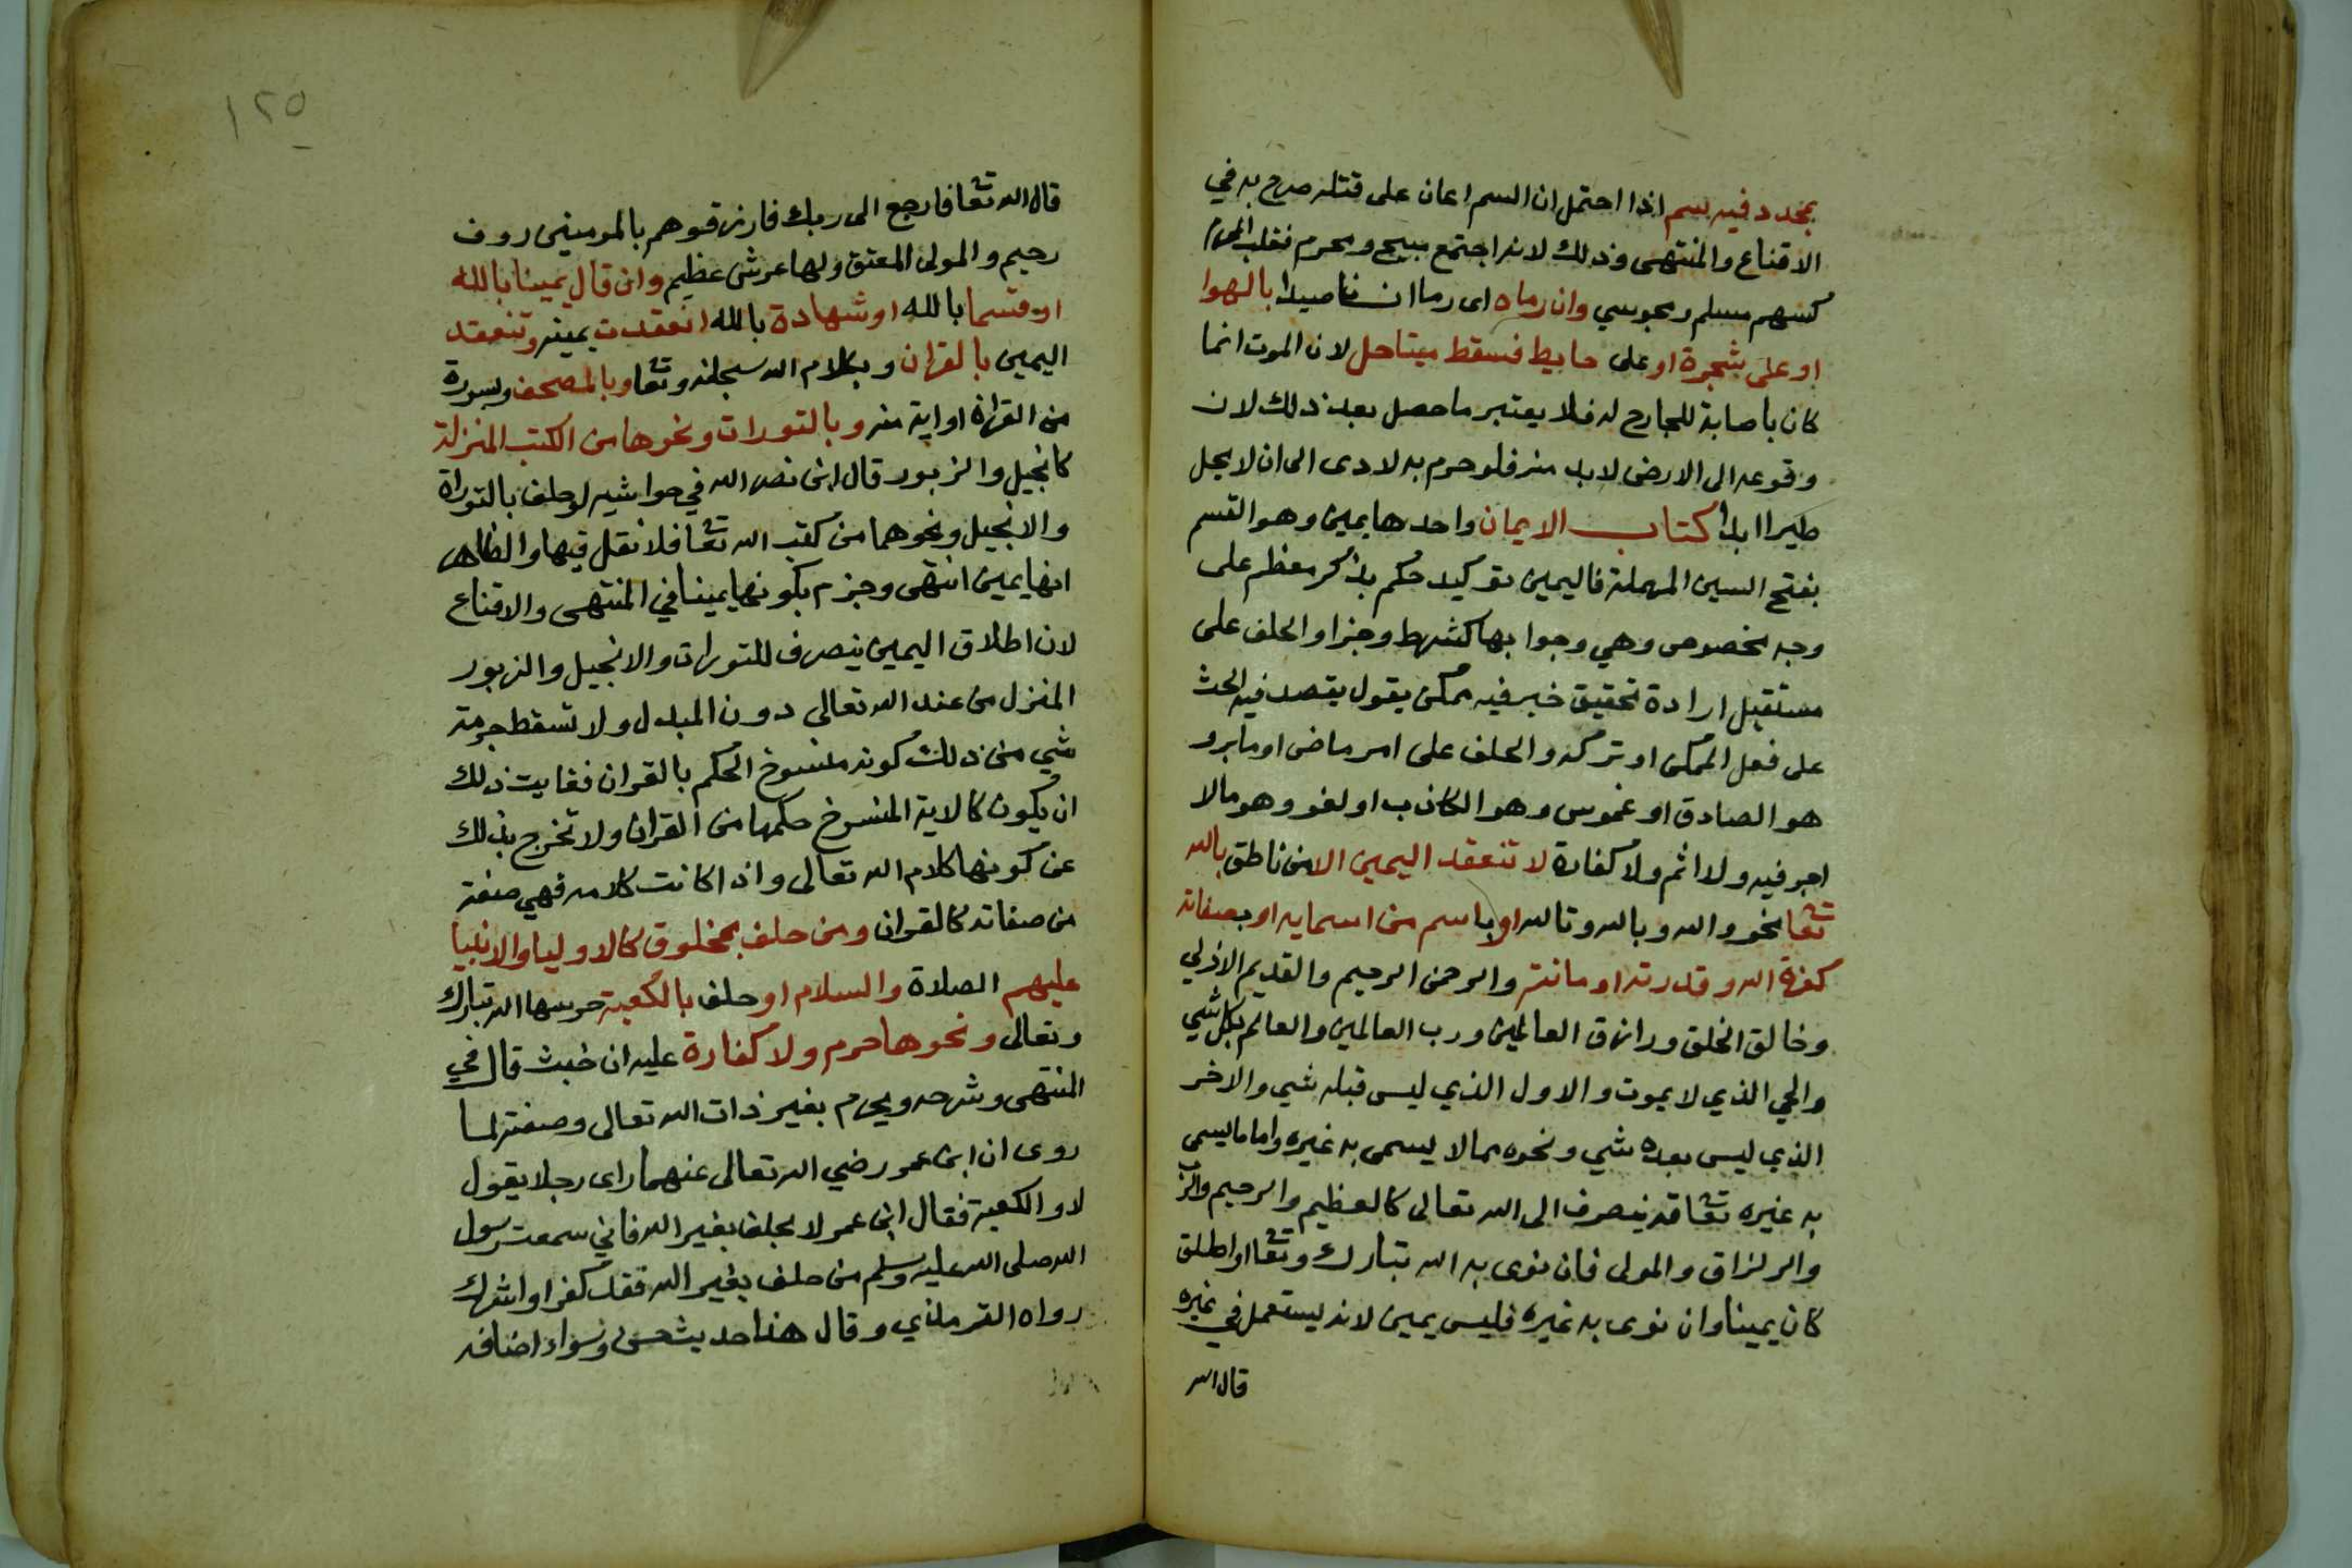 بمحدد فيه بسم اذا احتمل ان السم اعان على قتله صرح به في
الاقناع والمنتهى وذلك لانه اجتمع مبيح ومحرم فغلب المحرم
كسهم مسلم ومجوسي وان رماه اى رما انسانا صيدا بالهوا
او على شجرة او على حايط فسقط ميتا حل لان الموت انما
كان بأصابة للجارح له فلا يعتبر ما حصل بعد ذلك لان
وقوعه الى الارض لابد منه فلو حرم به لادى الى ان لا يحل
طيرا ابدا كتاب الايمان واحدها يمين وهو القسم
بفتح السين المهملة فاليمين توكيد حكم بذكر معظم على
وجه مخصوص وهي وجوابها كشرط وجزا والحلف على
مستقبل ارادة تحقيق خبر فيه ممكن بقول يقصد فيه الحث
على فعل الممكن او تركه والحلف على امر ماض اما بر و
هو الصادق او غموس وهو الكاذب او لغو وهو مالا
اجر فيه ولا اثم ولا كفارة لا تنعقد اليمين الا من ناطق بالله
تعا نحو والله وبالله وتالله او باسم من اسمايه او بصفاته
كعزة الله وقدرته او مانته والرحمن الرحيم والقديم الازلي
وخالق الخلق ورازق العالمين ورب العالمين والعالم بكل شي
والحي الذي لا يموت والاول الذي ليس قبله شي والاخر
الذي ليس بعده شي ونحوه مما لا يسمى به غيره واما ما يسمى
به غيره تعا قد ينصرف الى الله تعالى كالعظيم والرحيم والرب
والرزاق والمولى فان نوى به الله تبارك وتعا او اطلق
كان يمينا وان نوى به غيره فليس يمين لانه يستعمل في غيره
قال الله
١٢٥
قال الله تعا فارجع الى ربك فارزقوهم بالمومنين روف
رحيم والمولى المعتق ولها عرش عظيم وان قال يمينا بالله
او قسما بالله او شهادة بالله انعقدت يمينه وتنعقد
اليمين بالقران وبكلام الله سبحنه وتعا وبالمصحف وبسورة
من القران او اية منه وبالتورات ونحوها من الكتب المنزلة
كانجيل والزبور قال ابن نصر الله في حواشيه لو حلف بالتوراة
والانجيل ونحوهما من كتب الله تعا فلا نقل فيها والظاهر
انها يمين انتهى وجزم بكونها يمينا في المنتهى والاقناع
لان اطلاق اليمين ينصرف للتورات والانجيل والزبور
المنزل من عند الله تعالى دون المبدل ولا تسقط حرمة
شي من ذلك كونه منسوخ الحكم بالقران فغايت ذلك
ان يكون كالاية المنسوخ حكمها من القران ولا تخرج بذلك
عن كونها كلام الله تعالى واذا كانت كلامه فهي صفة
من صفاته كالقران ومن حلف بمخلوق كالاوليا والانبيا
عليهم الصلاة والسلام او حلف بالكعبة حرسها الله تبارك
وتعالى ونحوها حرم ولا كفارة عليه ان خبث قال في
المنتهى وشرحه ويحرم بغير ذات الله تعالى وصفته لما
روى ان ابن عمر رضي الله تعالى عنهما راى رجلا يقول
لا والكعبة فقال ابن عمر لا يحلف بغير الله فاني سمعت رسول
الله صلى الله عليه وسلم من حلف بغير الله فقد كفر او اشرك
رواه الترمذي وقال هذا حديث حسن وسواء اضافه